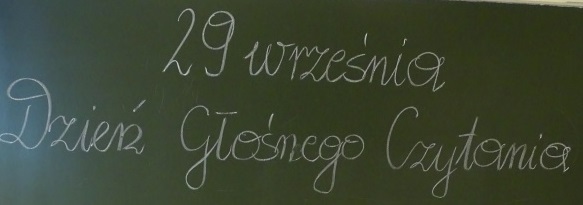 29 września
Dzień Głośnego Czytania